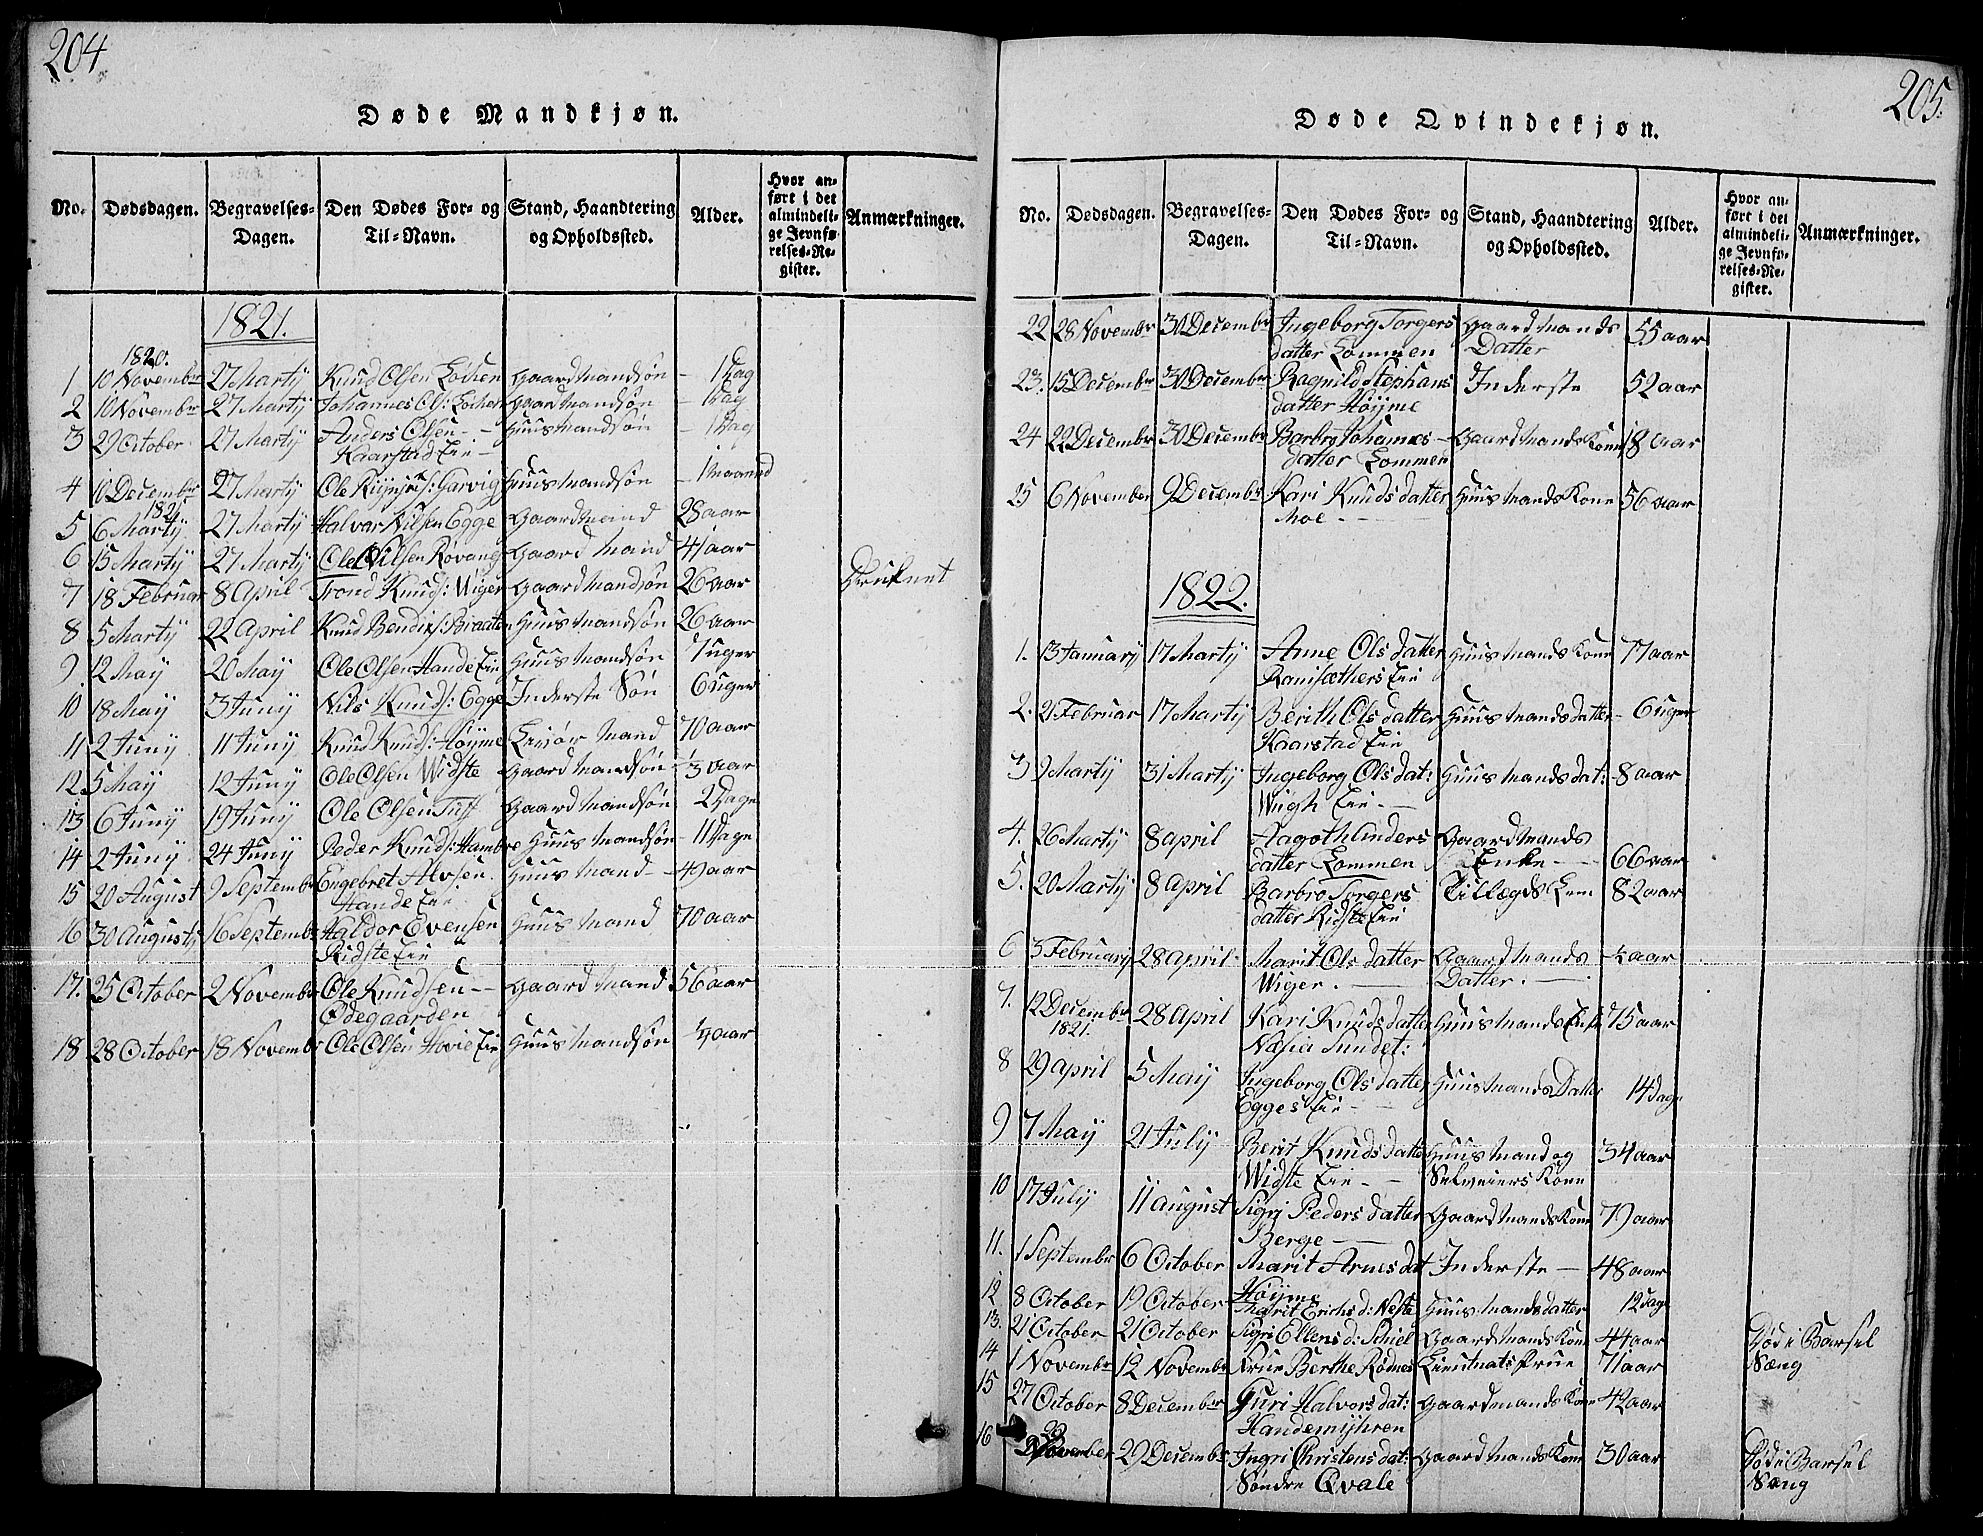 204
Døde Mandkjøn.
No. Dødsdagen. Begravelses-Dagen. Den Dødes For- og Til-Navn. Stand, Haandtering og Opholdssted. Alder. Hvor anført i det almindelige Jevnførelses-Register. Anmærkninger.
1821.
1820.
1 10 Novembr 27 Martij Knud Olsen Lochen Gaardmandsøn - 1 Dag
2 10 Novembr 27 Martij Johannes Ols: Lochen Gaardmandsøn - 1 Dag
3 29 October 27 Martij Anders Olsen Huusmandsøn - 1 Dag
Kaarstad Eie
4 10 Decembr 27 Martij Ole Garvig Huusmandsøn - 1 Maaned
1821
5 6 Martij 27 Martij Halvor Nilsen Egge Gaardmand 28 aar
6 15 Martij 27 Martij Ole Nilsen Rovang Gaard Mand 41 aar
7 18 Februar 8 April Trond Knuds: Wiger Gaardmandsøn 26 aar Druknet
8 5 Martij 22 April Knud Bendix: Braaten Huusmandsøn 26 aar
9. 12 Maij 20 Maij Ole Olsen Hande Eie Huusmandsøn 7 uger
10 18 Maij 3 Junij Nils Knuds: Egge Inderste Søn 6 uger
11 2 Junij 11 Junij Knud Knuds: Høyme Leiør Mand 70 aar
12 5 Maij 12 Junij Ole Olsen Widste Gaardmandsøn - 3 aar
13 6 Junij 19 Junij Ole Olsen Tuff Gaardmandsøn 2 Dage
14 2 Junij 24 Junij Peder Knuds: Hambre Huusmandsøn - 11 Dage
15 20 August 9 Septembr Engebret Alvsen Huusmand - 49 aar
Hande Eie
16 30 Augustij 16 Septembr Haldor Evensen Huusmand 70 aar
Ridste Eie
17. 25 October 2 Novembr Ole Knudsen Gaardmand 56 aar
Ødegaarden
18 28 October 18 Novembr Ole Olsen Hovie Eie Huusmandsøn aar
205.
Døde Qvindekjøn.
No. Dødsdagen. Begravelses-Dagen. Den Dødes For- og Til-Navn. Stand, Haandtering og Opholdssted. Alder. Hvor anført i det almindelige Jevnførelses-Register. Anmærkninger.
22 28 Novembr 30 Decembr Ingeborg Torgers Gaardmands 55 aar
datter Lommen Datter
23. 15 Decembr 30 Decembr Ragnild Stephans Inderste 52 aar
datter Høyme
24 22 Decembr 30 Decembr Barbro Johannes- Gaardmands Kone 18 aar
datter Lommen
25 6 November 9 Decembr Kari Knudsdatter Huusmands Kone 56 aar
Moe
1822.
1. 13 Januarij 17 Martij Anne Olsdatter Huusmands Kone 77 aar
Ranisæthers Eie
2. 21 Februar 17 Martij Berith Olsdatter Huusmandsdatter 6 uger
Kaarstad Eie
3 9 Martij 31 Martij Ingeborg Olsdat: Huusmandsdat: 8 aar
Wiigh Eie
4. 26 Martij 8 april Aagoth Anders Gaardmands
datter Lommen Enke 66 aar
5. 20 Martij 8 April Barbro Torgers Tillægds Lem 82 aar
datter Ridste Eie
6 5 Februarij 28 April Marit Olsdatter Gaardmands aar
Wiger. Datter.
7. 12 Decembr 28 April Kari Knudsdatter Huusmands Enke 75 aar
1821. Sundet:
8 29 april 5 Maij Ingeborg Olsdatter Huusmands Datter 14 dage
Egges Eie
9 7 Maij 21 Julij Berit Knudsdatter Huusmand og 34 aar
Widste Eie Selveiers Kone
10 17 Julij 11 august Sigri Pedersdatter Gaardmands Kone 79 aar
Berge
11. 1 Septembr 6 October Marit Arnesdat Inderste 48 aar
Høyme
12 8 October 19 October Marit Erichsd: Neste Huusmandsdatter 12 dage
13. 21 October 21 October Sigri Ellensd: Schiel Gaardmands Kone 44 aar Død i Barsel
14 1 Novembr 12 Novembr Frue Berthe Rødnes Lieutnats frue 71 aar Sæng
15 27 October 8 Decembr Guri Halvorsdat: Gaardmands Kone 42 aar
Handemyhren
16 November 29 Decembr Ingri Christensdat: Gaardmands Kone 30 aar Død i Barsel
Søndre Qvale Sæng